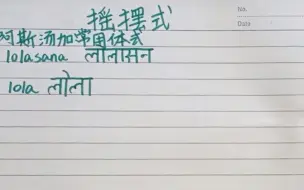 摇摆式
No.
Date
阿斯汤加常困体式
lolasana लोलासन
lola लोला